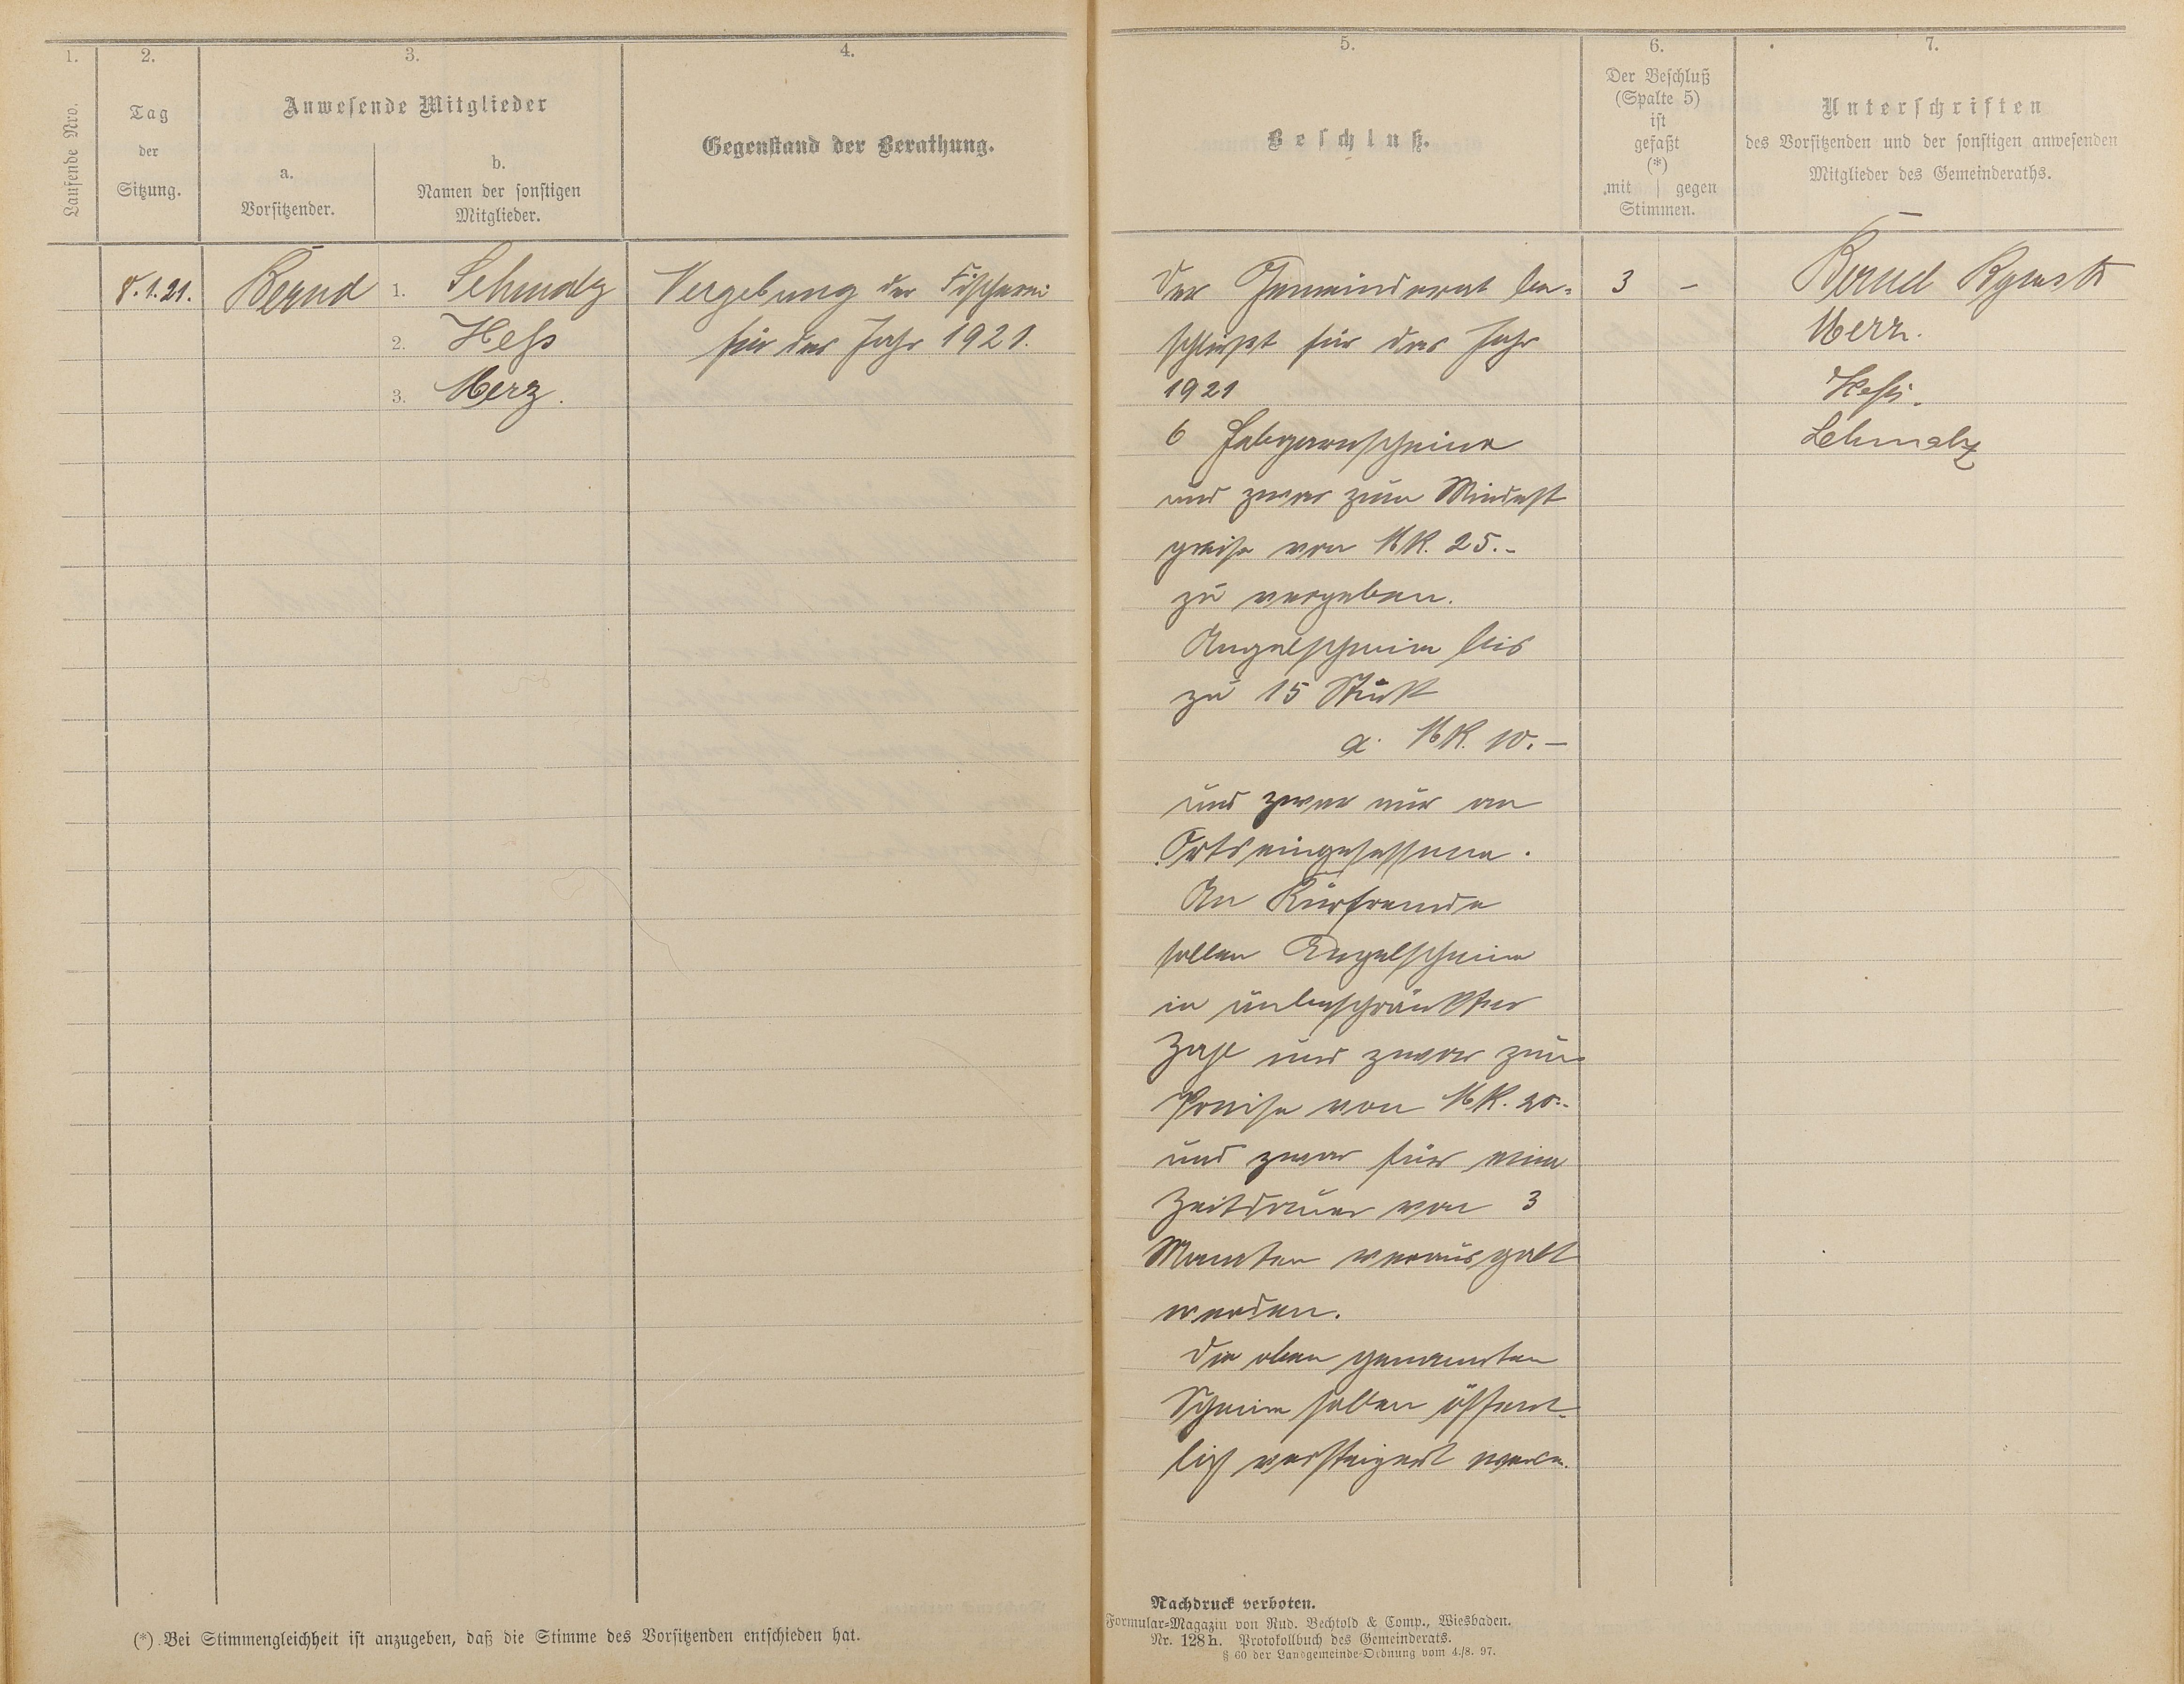 1.
Laufende Nro.
2.
Tag
der
Sitzung.
3.
Anwesende Mitglieder
a.
Vorsitzender.
b.
Namen der sonstigen
Mitglieder.
4.
Gegenstand der Berathung.
8.1.21.
Bernd
1. Schmalz
2. Heß
3. Merz.
Vergebung der Fischerei
für das Jahr 1921.
(*) Bei Stimmengleichheit ist anzugeben, daß die Stimme des Vorsitzenden entschieden hat.
5.
Beschluß.
6.
Der Beschluß
(Spalte 5)
ist
gefaßt
(*)
mit | gegen
Stimmen.
7.
Unterschriften
des Vorsitzenden und der sonstigen anwesenden
Mitglieder des Gemeinderaths.
Der Gemeinderat be-
schließt für das Jahr
1921
6
und zwar zum Mindest
preise von MK. 25.-
zu vergeben.
Angelscheine bis
zu 15 Stück
a MK. 10.-
und zwar nur an
Ortseingesessene.
An Kurfremde
sollen Angelscheine
in unbeschränkter
Zahl und zwar zum
Preise von MK. 20.-
und zwar für eine
Zeitdauer von 3
Monaten
werden.
Die oben genannten
Scheine sollen öffent-
lich versteigert werden.
3 -
Bernd
Merz.
Heß.
Schmalz
Nachdruck verboten.
Formular-Magazin von Rud. Bechtold & Comp., Wiesbaden.
Nr. 128 h. Protokollbuch des Gemeinderats.
§ 60 der Landgemeinde-Ordnung vom 4./8. 97.